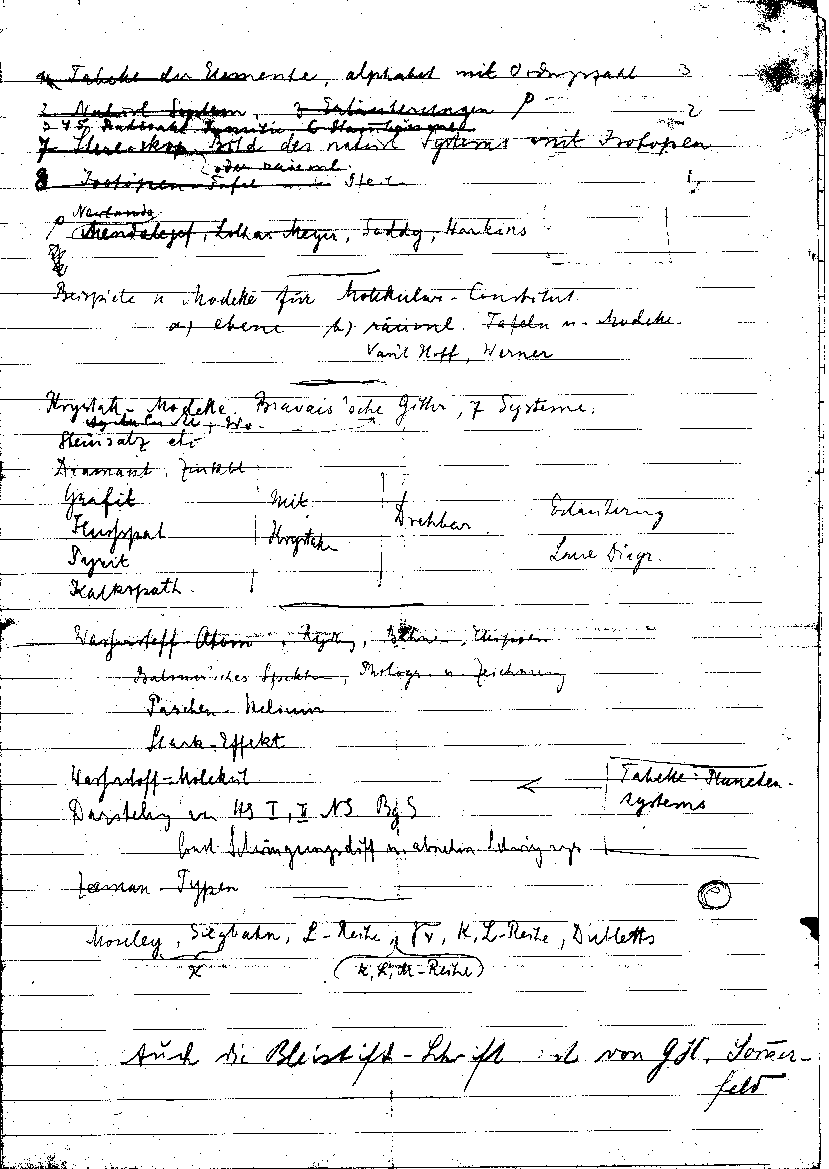 Tabelle der Elemente, alphabet mit Ordnungszahl 3
2 Natürl System, 3 Erläuterungen P 2
7 Stereoskop Bild des natürl Systems mit Isotopen
oder räuml.
8 Isotopen-Tafel 1.
Newlands
P Mendelejef, Lothar Meyer, Soddy, Harkins
Beispiele u Modelle für Molekular-Constitut
a) ebene b) räuml. Tafeln u. Modelle.
Van't Hoff, Werner
Krystall-Modelle. Bravais'sche Gitter, 7 Systeme.
Steinsalz etc
Diamant, Zinkbl
Grafit Mit Drehbar Erläuterung
Flusspat Krystallen
Pyrit Laue Diagr.
Kalkspath.
Wasserstoff-Atom, Bahn, Ellipsen
Balmer'sches Spektr, Photogr. u. Zeichnung
Paschen-Helium
Stark-Effekt
Wasserstoff-Molekül Tabelle: Planeten-
systems
Darstellg von HS I, II NS BgS
Zeeman-Typen
Moseley, Siegbahn, L-Reihe, K, L-Reihe, Dubletts
K (K, L, M-Reihe)
Auch die Bleistift-Schrift ist von GH. Sommer-
feld